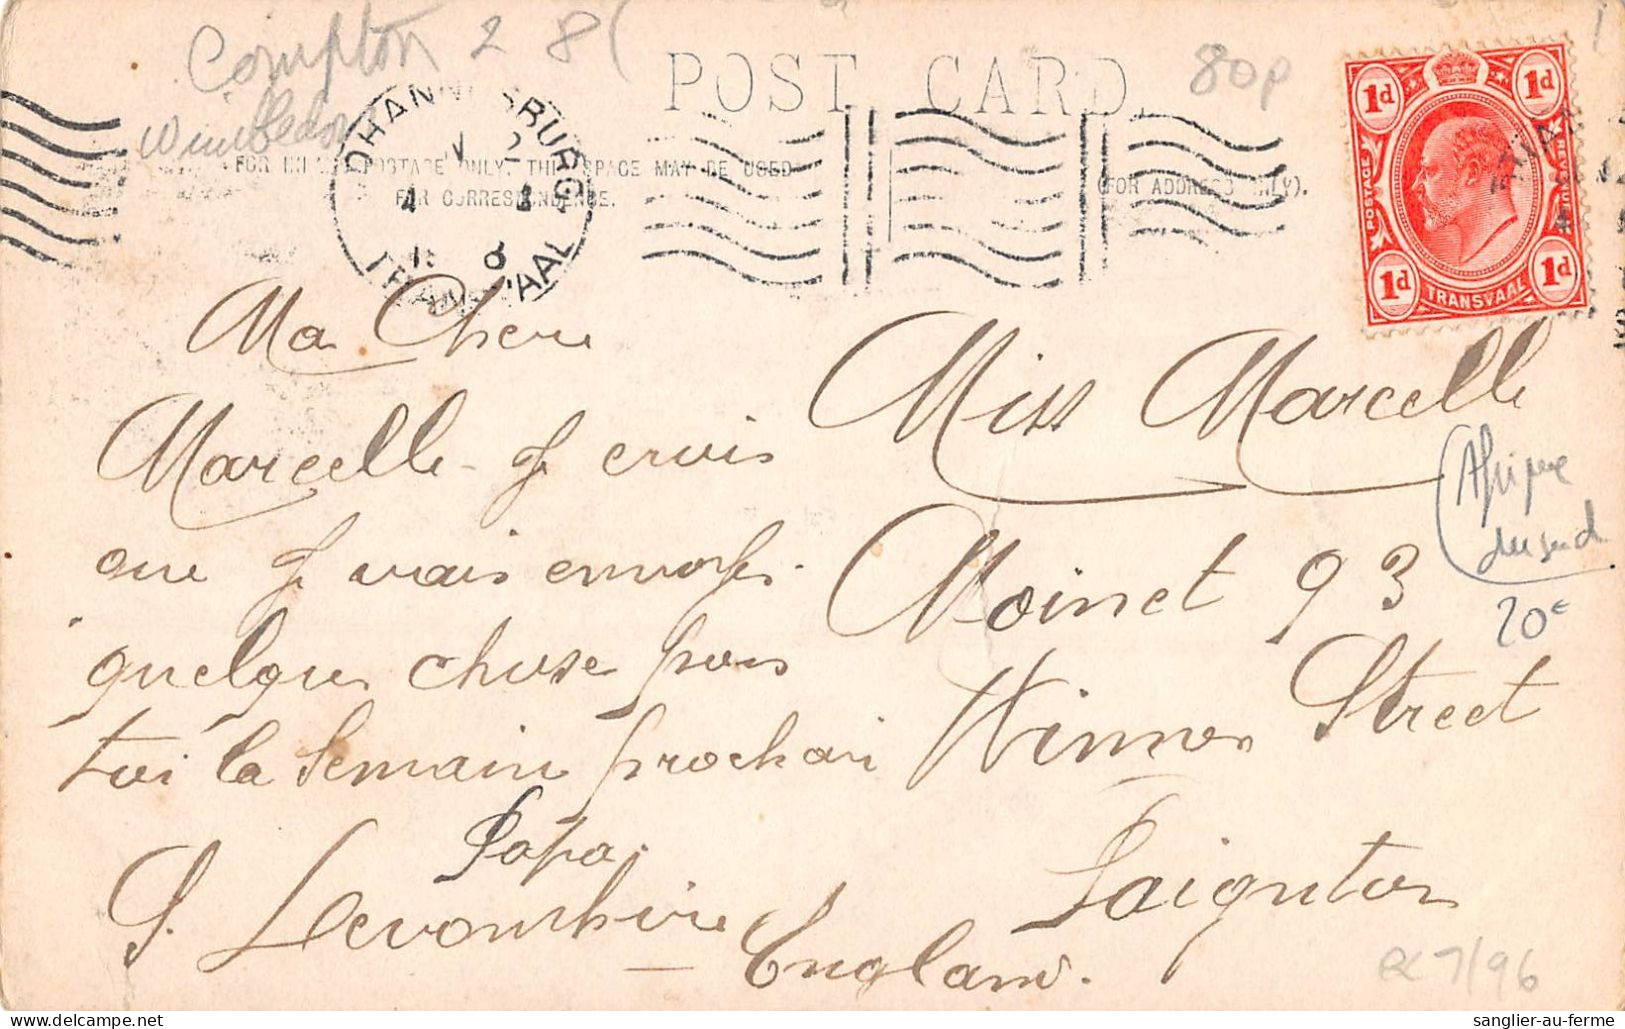 Compton 2 8
Wimbledon
80p
POST CARD.
FOR INLAND POSTAGE ONLY. THIS SPACE MAY BE USED
FOR CORRESPONDENCE.
(FOR ADDRESS ONLY).
JOHANNESBURG
TRANSVAAL
1d 1d
POSTAGE REVENUE
1d 1d
TRANSVAAL
Ma Chere
Marcelle je crois
que je vais envoyer
quelques chose pour
toi la Semain prochain
Papa.
Miss Marcelle
Moinet 93
Winner Street
Paignton
S. Devonshire England.
Afrique
du sud
20€
7/96
sanglier-au-ferme